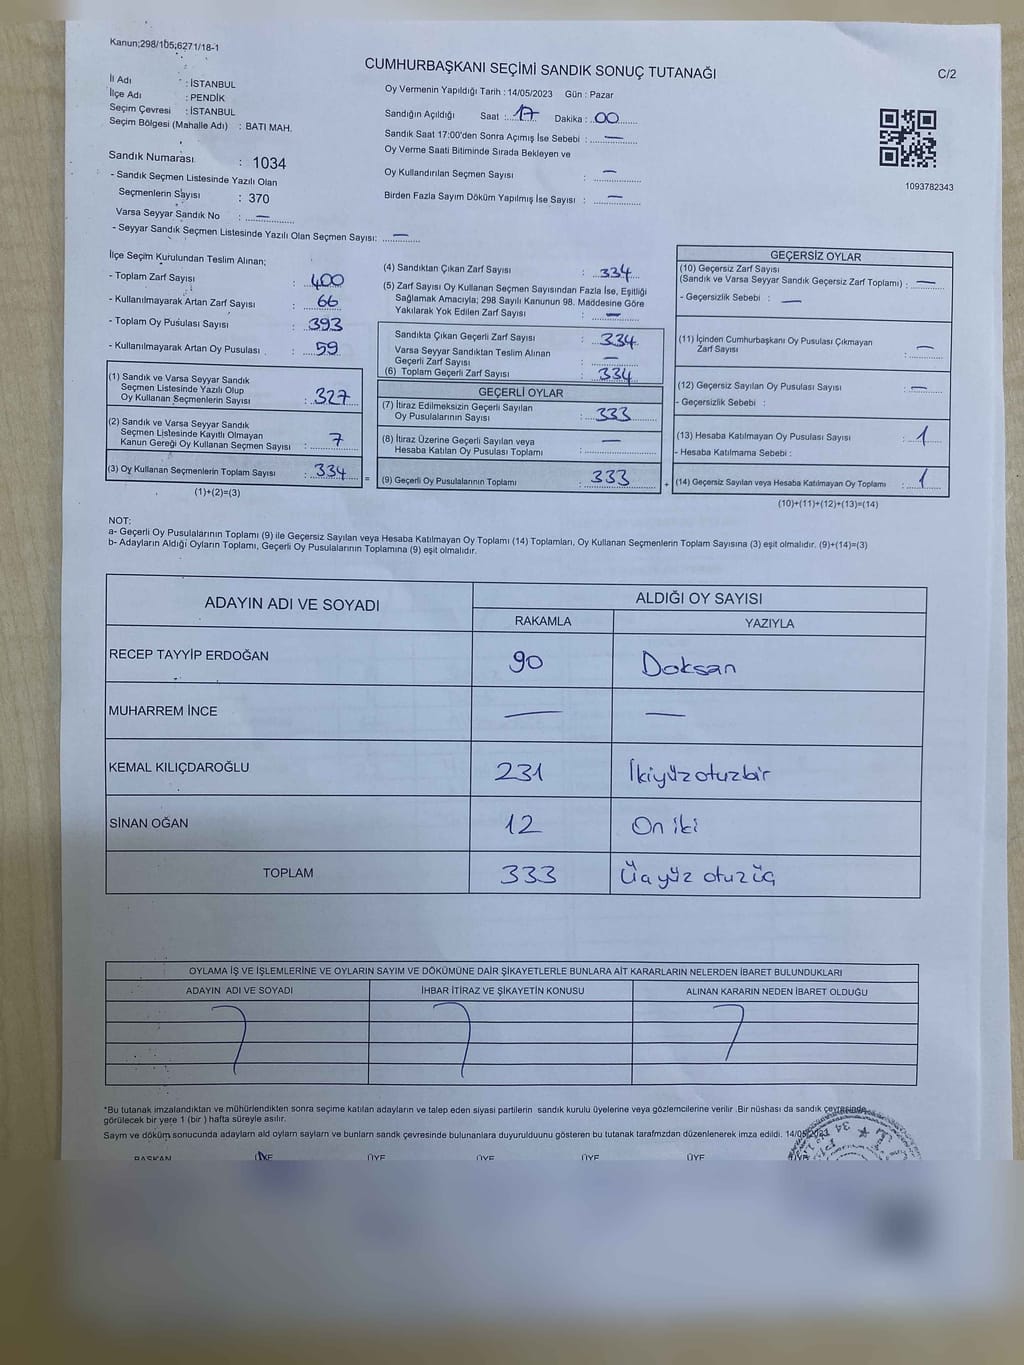 Kanun;298/105;6271/18-1
CUMHURBAŞKANI SEÇİMİ SANDIK SONUÇ TUTANAĞI
C/2
İl Adı : İSTANBUL
İlçe Adı : PENDİK
Seçim Çevresi : İSTANBUL
Seçim Bölgesi (Mahalle Adı) : BATI MAH.
Oy Vermenin Yapıldığı Tarih : 14/05/2023 Gün : Pazar
Sandığın Açıldığı Saat : 17 Dakika : 00
Sandık Saat 17:00'den Sonra Açımış İse Sebebi : —
Oy Verme Saati Bitiminde Sırada Bekleyen ve
Oy Kullandırılan Seçmen Sayısı : —
Birden Fazla Sayım Döküm Yapılmış İse Sayısı : —
1093782343
Sandık Numarası : 1034
- Sandık Seçmen Listesinde Yazılı Olan
Seçmenlerin Sayısı : 370
Varsa Seyyar Sandık No : —
- Seyyar Sandık Seçmen Listesinde Yazılı Olan Seçmen Sayısı: —
İlçe Seçim Kurulundan Teslim Alınan;
- Toplam Zarf Sayısı : 400
- Kullanılmayarak Artan Zarf Sayısı : 66
- Toplam Oy Pusulası Sayısı : 393
- Kullanılmayarak Artan Oy Pusulası : 59
(1) Sandık ve Varsa Seyyar Sandık
Seçmen Listesinde Yazılı Olup
Oy Kullanan Seçmenlerin Sayısı : 327
(2) Sandık ve Varsa Seyyar Sandık
Seçmen Listesinde Kayıtlı Olmayan
Kanun Gereği Oy Kullanan Seçmen Sayısı : 7
(3) Oy Kullanan Seçmenlerin Toplam Sayısı : 334
(1)+(2)=(3)
=
(4) Sandıktan Çıkan Zarf Sayısı : 334
(5) Zarf Sayısı Oy Kullanan Seçmen Sayısından Fazla İse, Eşitliği
Sağlamak Amacıyla; 298 Sayılı Kanunun 98. Maddesine Göre
Yakılarak Yok Edilen Zarf Sayısı : —
Sandıkta Çıkan Geçerli Zarf Sayısı : 334
Varsa Seyyar Sandıktan Teslim Alınan
Geçerli Zarf Sayısı : —
(6) Toplam Geçerli Zarf Sayısı : 334
GEÇERLİ OYLAR
(7) İtiraz Edilmeksizin Geçerli Sayılan
Oy Pusulalarının Sayısı : 333
(8) İtiraz Üzerine Geçerli Sayılan veya
Hesaba Katılan Oy Pusulası Toplamı : —
(9) Geçerli Oy Pusulalarının Toplamı : 333
+
GEÇERSİZ OYLAR
(10) Geçersiz Zarf Sayısı
(Sandık ve Varsa Seyyar Sandık Geçersiz Zarf Toplamı) : —
- Geçersizlik Sebebi : —
(11) İçinden Cumhurbaşkanı Oy Pusulası Çıkmayan
Zarf Sayısı : —
(12) Geçersiz Sayılan Oy Pusulası Sayısı : —
- Geçersizlik Sebebi :
(13) Hesaba Katılmayan Oy Pusulası Sayısı : 1
- Hesaba Katılmama Sebebi :
(14) Geçersiz Sayılan veya Hesaba Katılmayan Oy Toplamı : 1
(10)+(11)+(12)+(13)=(14)
NOT:
a- Geçerli Oy Pusulalarının Toplamı (9) ile Geçersiz Sayılan veya Hesaba Katılmayan Oy Toplamı (14) Toplamları, Oy Kullanan Seçmenlerin Toplam Sayısına (3) eşit olmalıdır. (9)+(14)=(3)
b- Adayların Aldığı Oyların Toplamı, Geçerli Oy Pusulalarının Toplamına (9) eşit olmalıdır.
ADAYIN ADI VE SOYADI
ALDIĞI OY SAYISI
RAKAMLA YAZIYLA
RECEP TAYYİP ERDOĞAN 90 Doksan
MUHARREM İNCE — —
KEMAL KILIÇDAROĞLU 231 İkiyüzotuzbir
SİNAN OĞAN 12 On iki
TOPLAM 333 Üçyüz otuz üç
OYLAMA İŞ VE İŞLEMLERİNE VE OYLARIN SAYIM VE DÖKÜMÜNE DAİR ŞİKAYETLERLE BUNLARA AİT KARARLARIN NELERDEN İBARET BULUNDUKLARI
ADAYIN ADI VE SOYADI İHBAR İTİRAZ VE ŞİKAYETİN KONUSU ALINAN KARARIN NEDEN İBARET OLDUĞU
*Bu tutanak imzalandıktan ve mühürlendikten sonra seçime katılan adayların ve talep eden siyasi partilerin sandık kurulu üyelerine veya gözlemcilerine verilir .Bir nüshası da sandık çevresinde
görülecek bir yere 1 (bir ) hafta süreyle asılır.
Sayım ve döküm sonucunda adayların ald oyların sayların ve bunların sandk çevresinde bulunanlara duyurulduunu gösteren bu tutanak tarafmzdan düzenlenerek imza edildi. 14/05/2023
BAŞKAN ÜYE ÜYE ÜYE ÜYE ÜYE